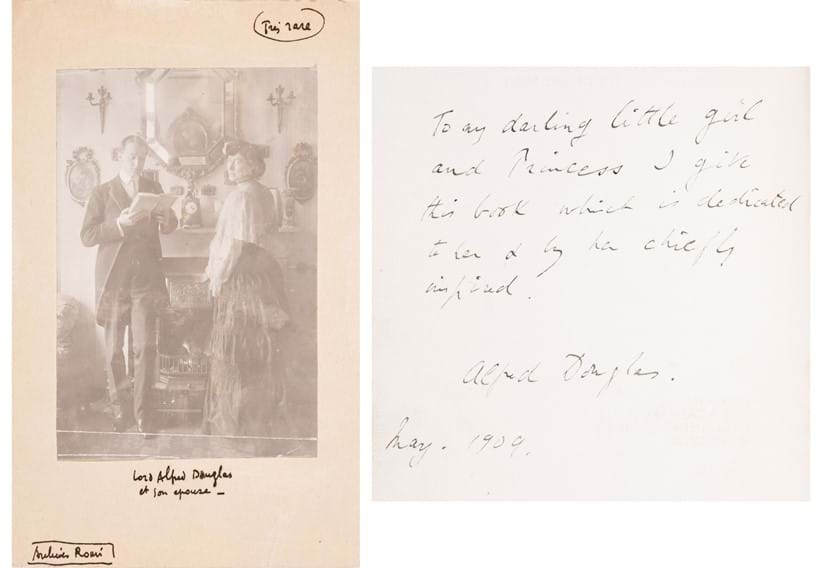 Très rare
Lord Alfred Douglas
et son epouse —
Archives Roari
To my darling little girl
and Princess I give
this book which is dedicated
to her & by her chiefly
inspired.
Alfred Douglas.
May. 1909.